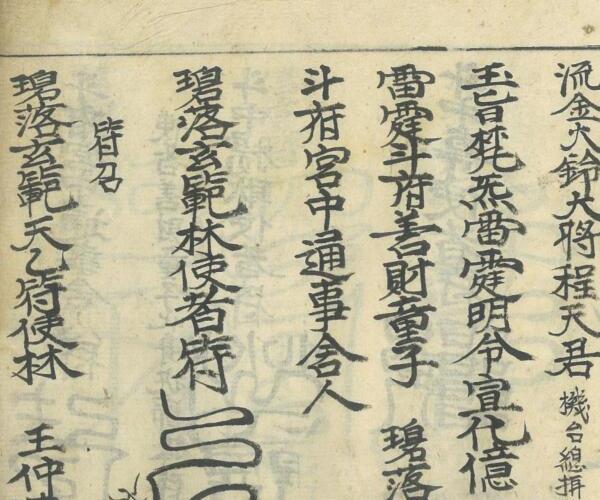 流金火鈴大將程天君 機台總
玉旨梵炁雷霆明令宣化億
雷霆斗府善財童子 碧落
斗府宮中通事舍人
碧落玄範林使者符
符召
碧落玄範天乙符使林 王仲